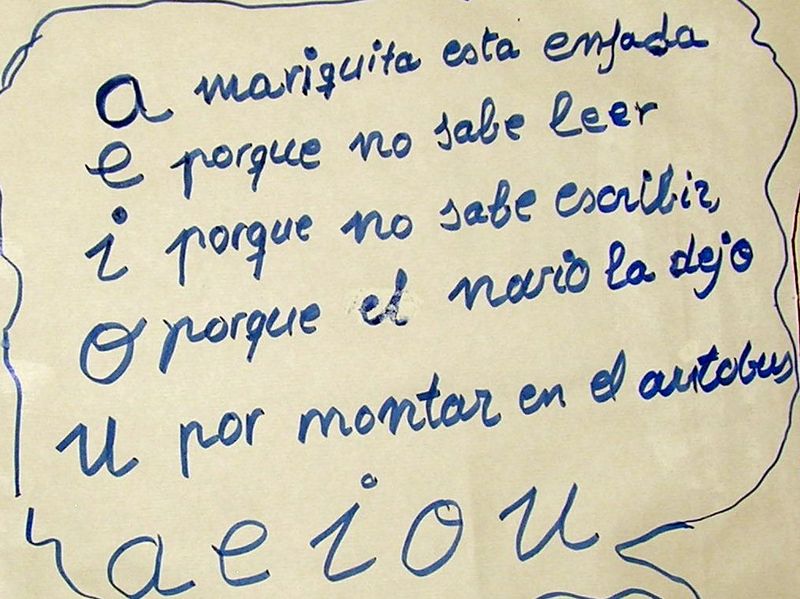 a mariquita esta enfada
e porque no sabe leer
i porque no sabe escribir,
o porque el novio la dejo
u por montar en el autobus
a e i o u